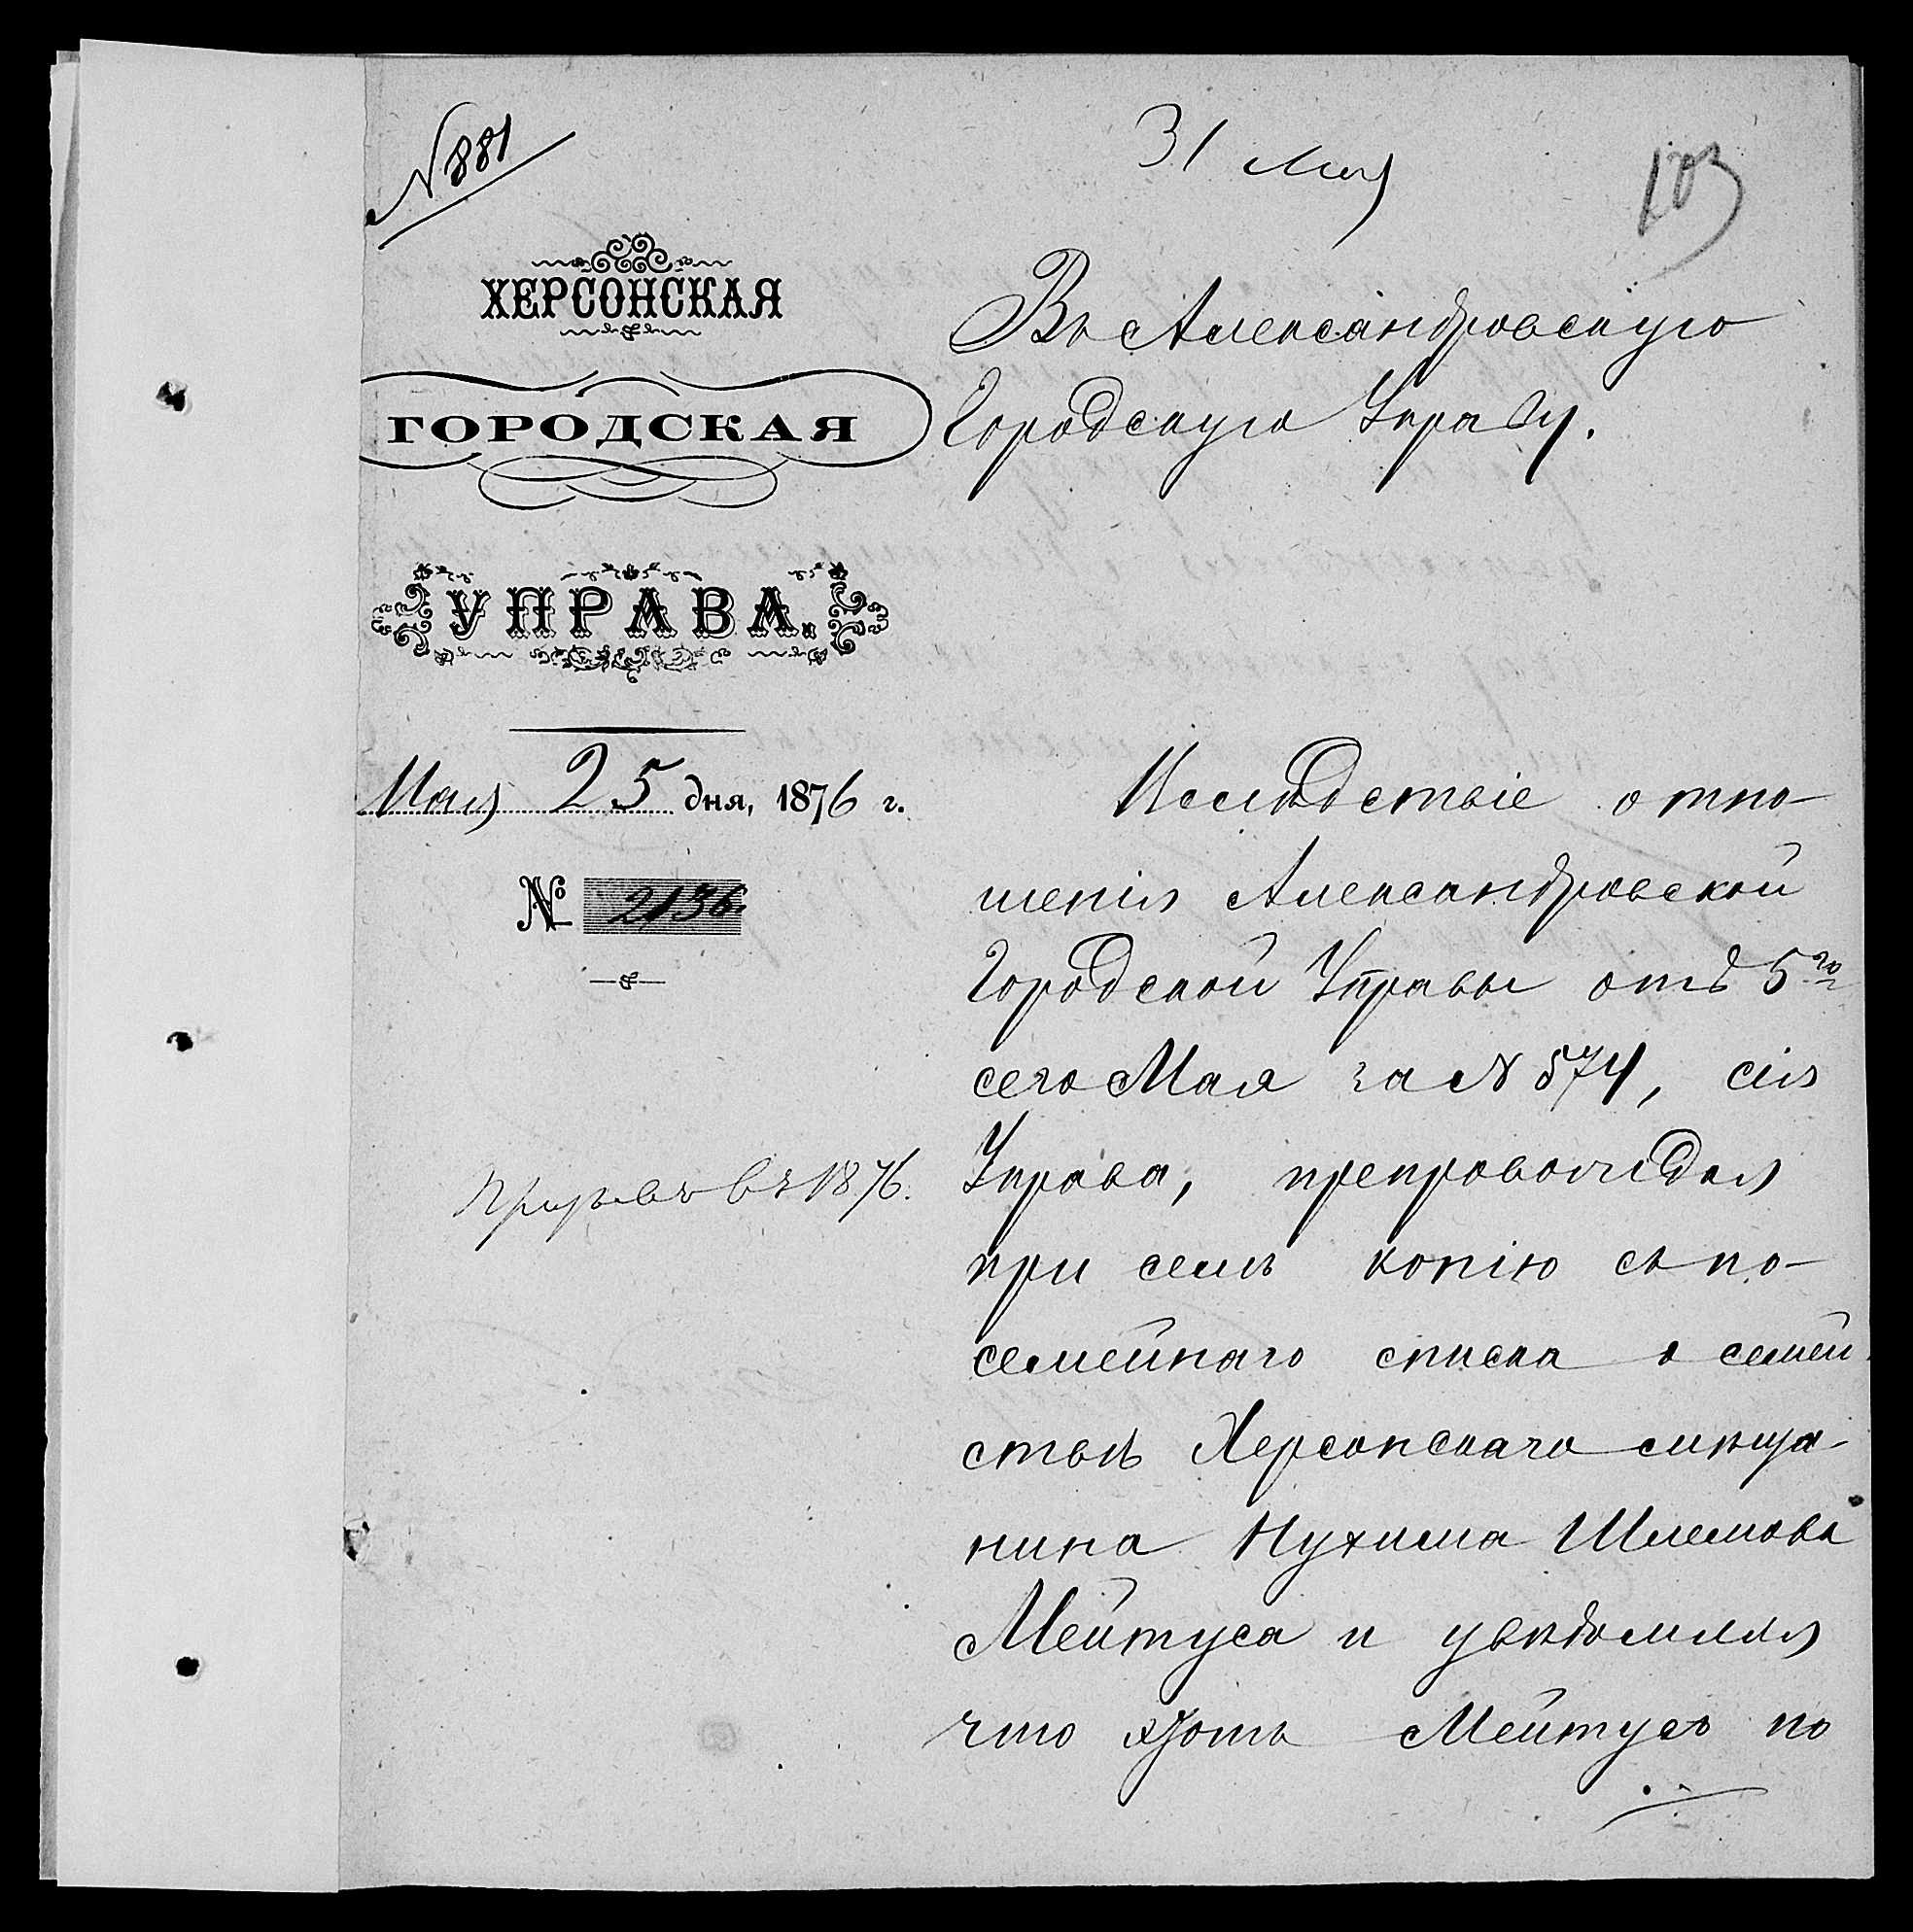 № 881
31 Мая
103
ХЕРСОНСКАЯ
ГОРОДСКАЯ
УПРАВА.
Мая 25 дня, 1876 г.
№ 2136.
Призывъ въ 1876.
Въ Александровскую
Городскую Управу.
Вслѣдствіе отно-
шенія Александровской
Городской Управы отъ 5го
сего Мая за № 574, сія
Управа, препровождая
при семъ копію съ по-
семейнаго списка о семей
ствѣ Херсонскаго мѣща-
нина Нухима Шлемова
Мейтуса и увѣдомляя
что этотъ Мейтусъ по